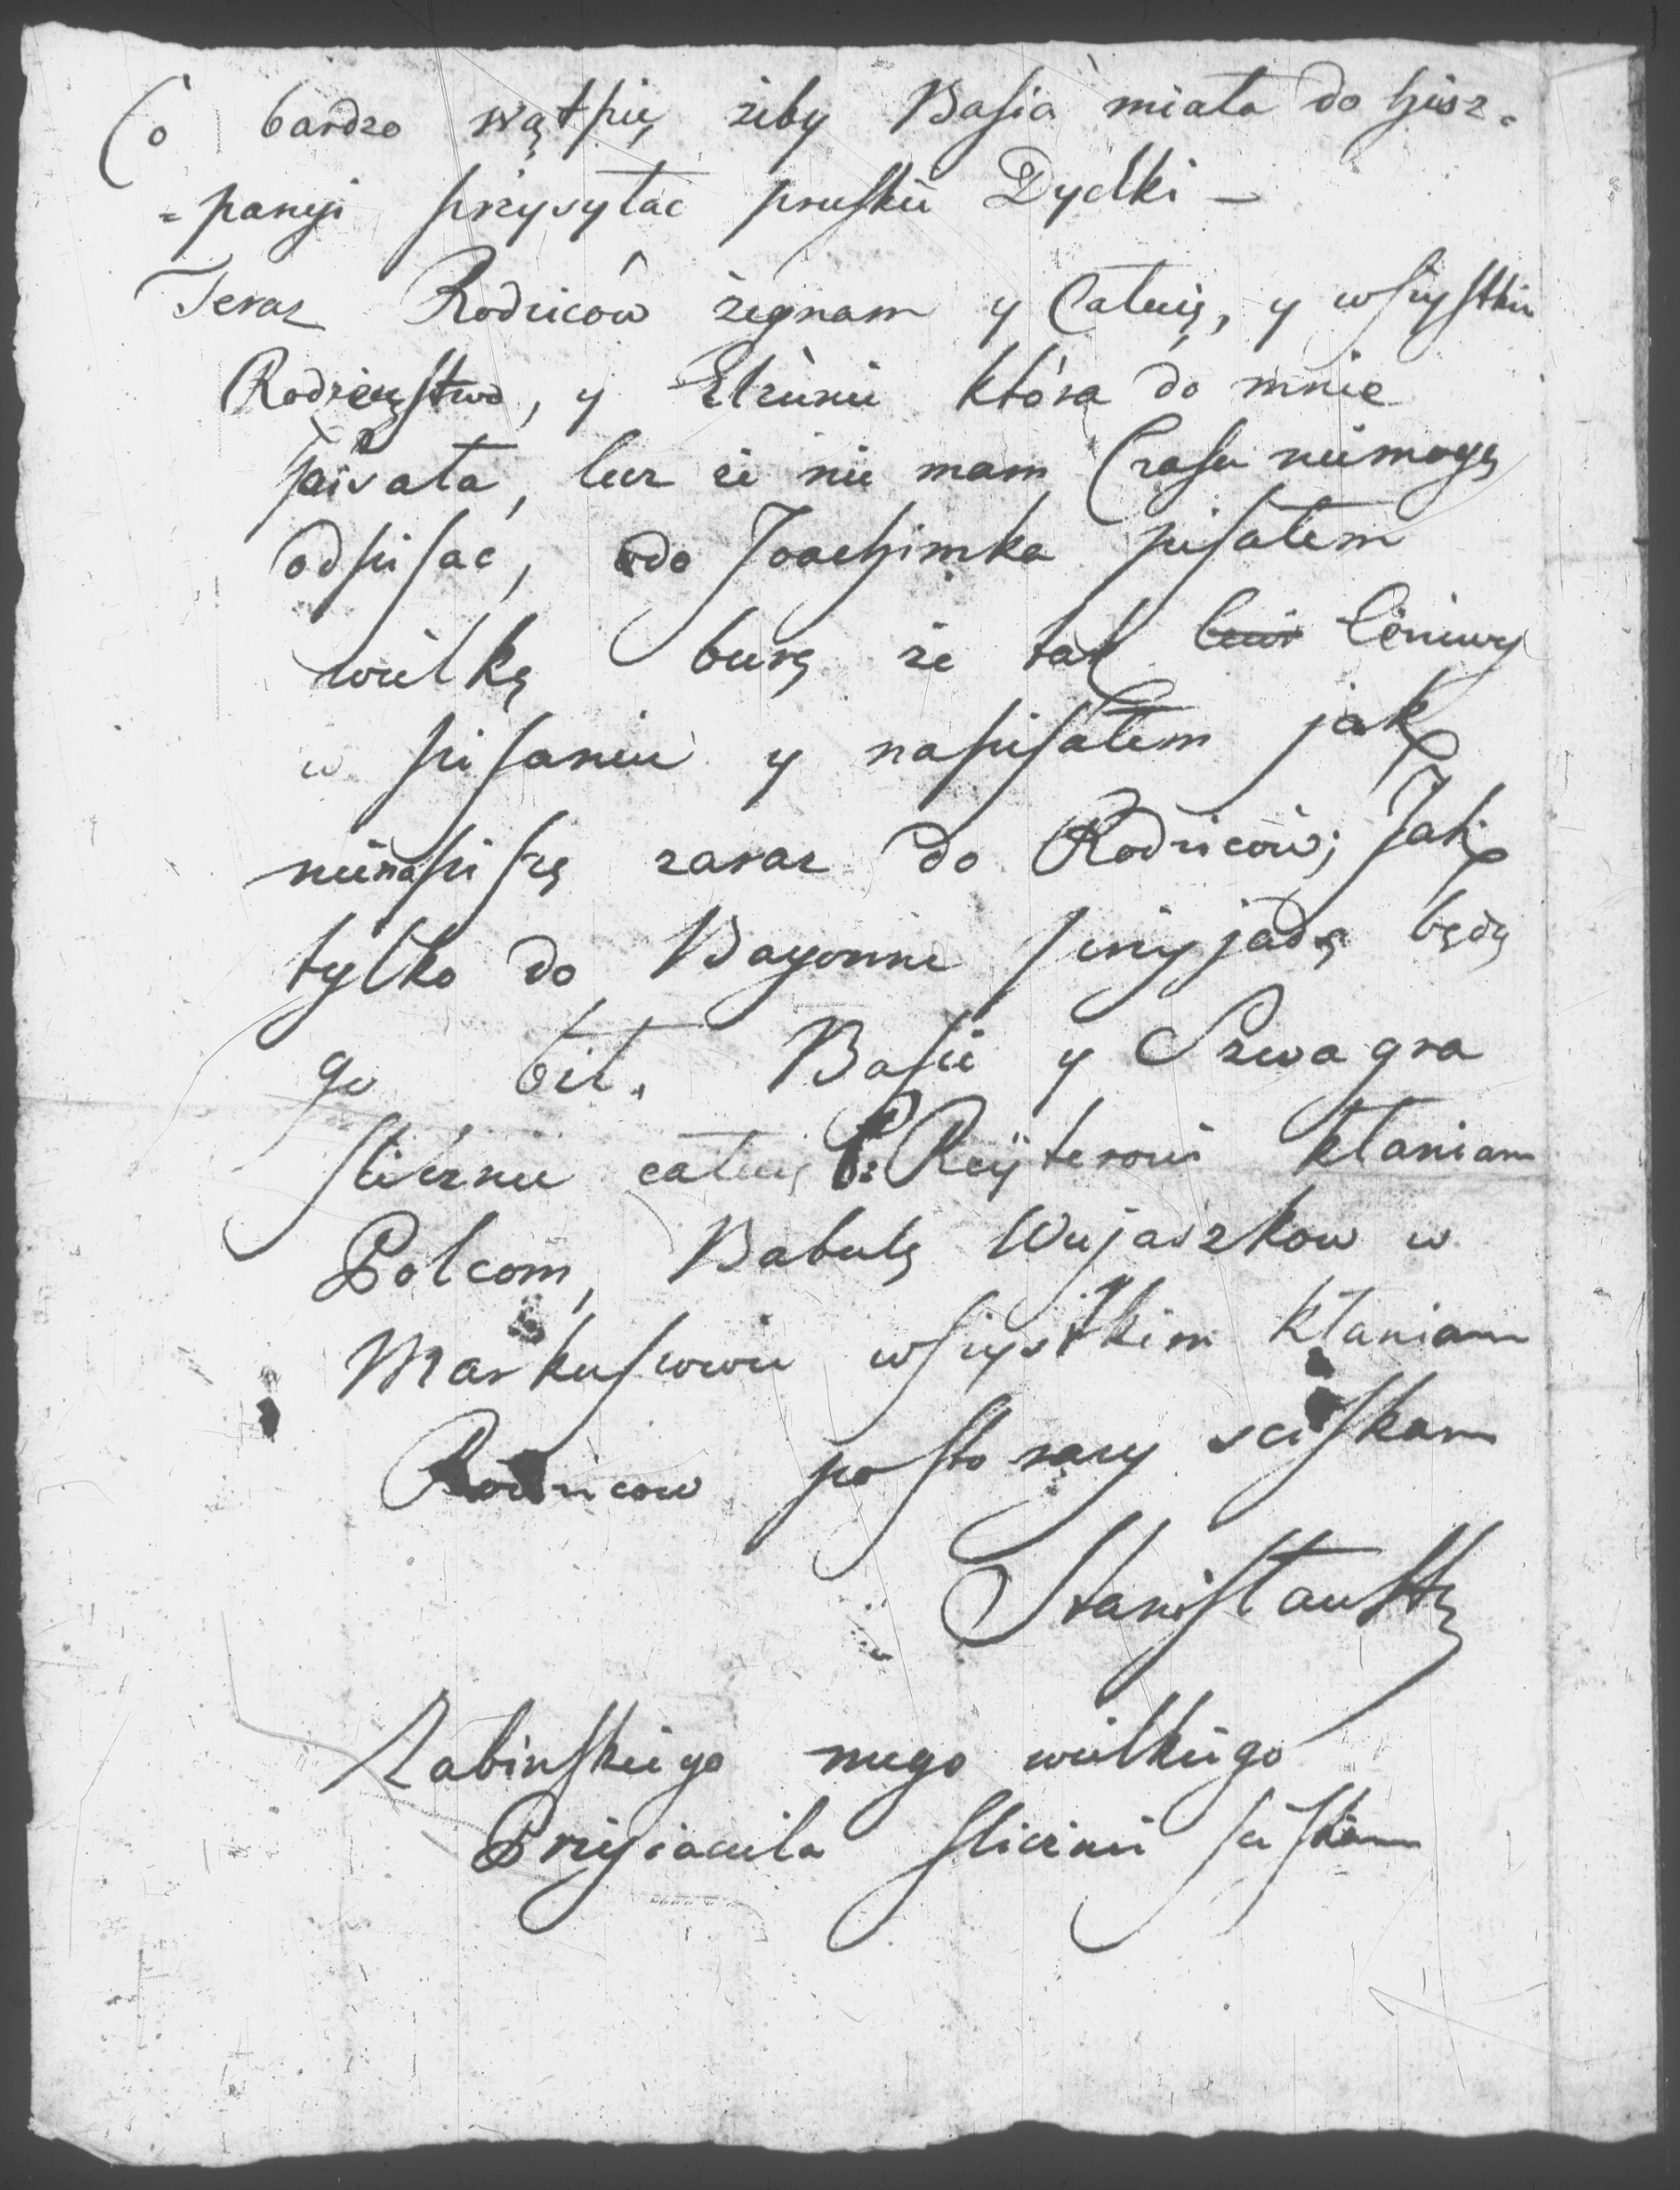 Co bardzo wątpię żeby Basia miała do hisz=
=panji przysyłać pruskie Dydki –
Teraz Rodzicow żegnam y Całuię, y wszystkie
Rodzeństwo, y Elzunie która do mnie
pisała, lecz że nie mam Czasu niemogę
odpisać, do Joachimka pisałem
wielką burę że tak leniwy
w pisaniu y napisałem jak
nienapiszę zaraz do Rodziców; Jak
tylko do Bayonne przyjadę będę
go bił. Basie y Szwagra
slicznie całuię P: Reyterowi kłaniam
Polcom, Babulę Wujaszkow w
Markuszowie wszystkim kłaniam
Rodzicow po sto razy sciskam
Stanisław
Zabinskiego mego wielkiego
Przyiaciela slicznie sciskam